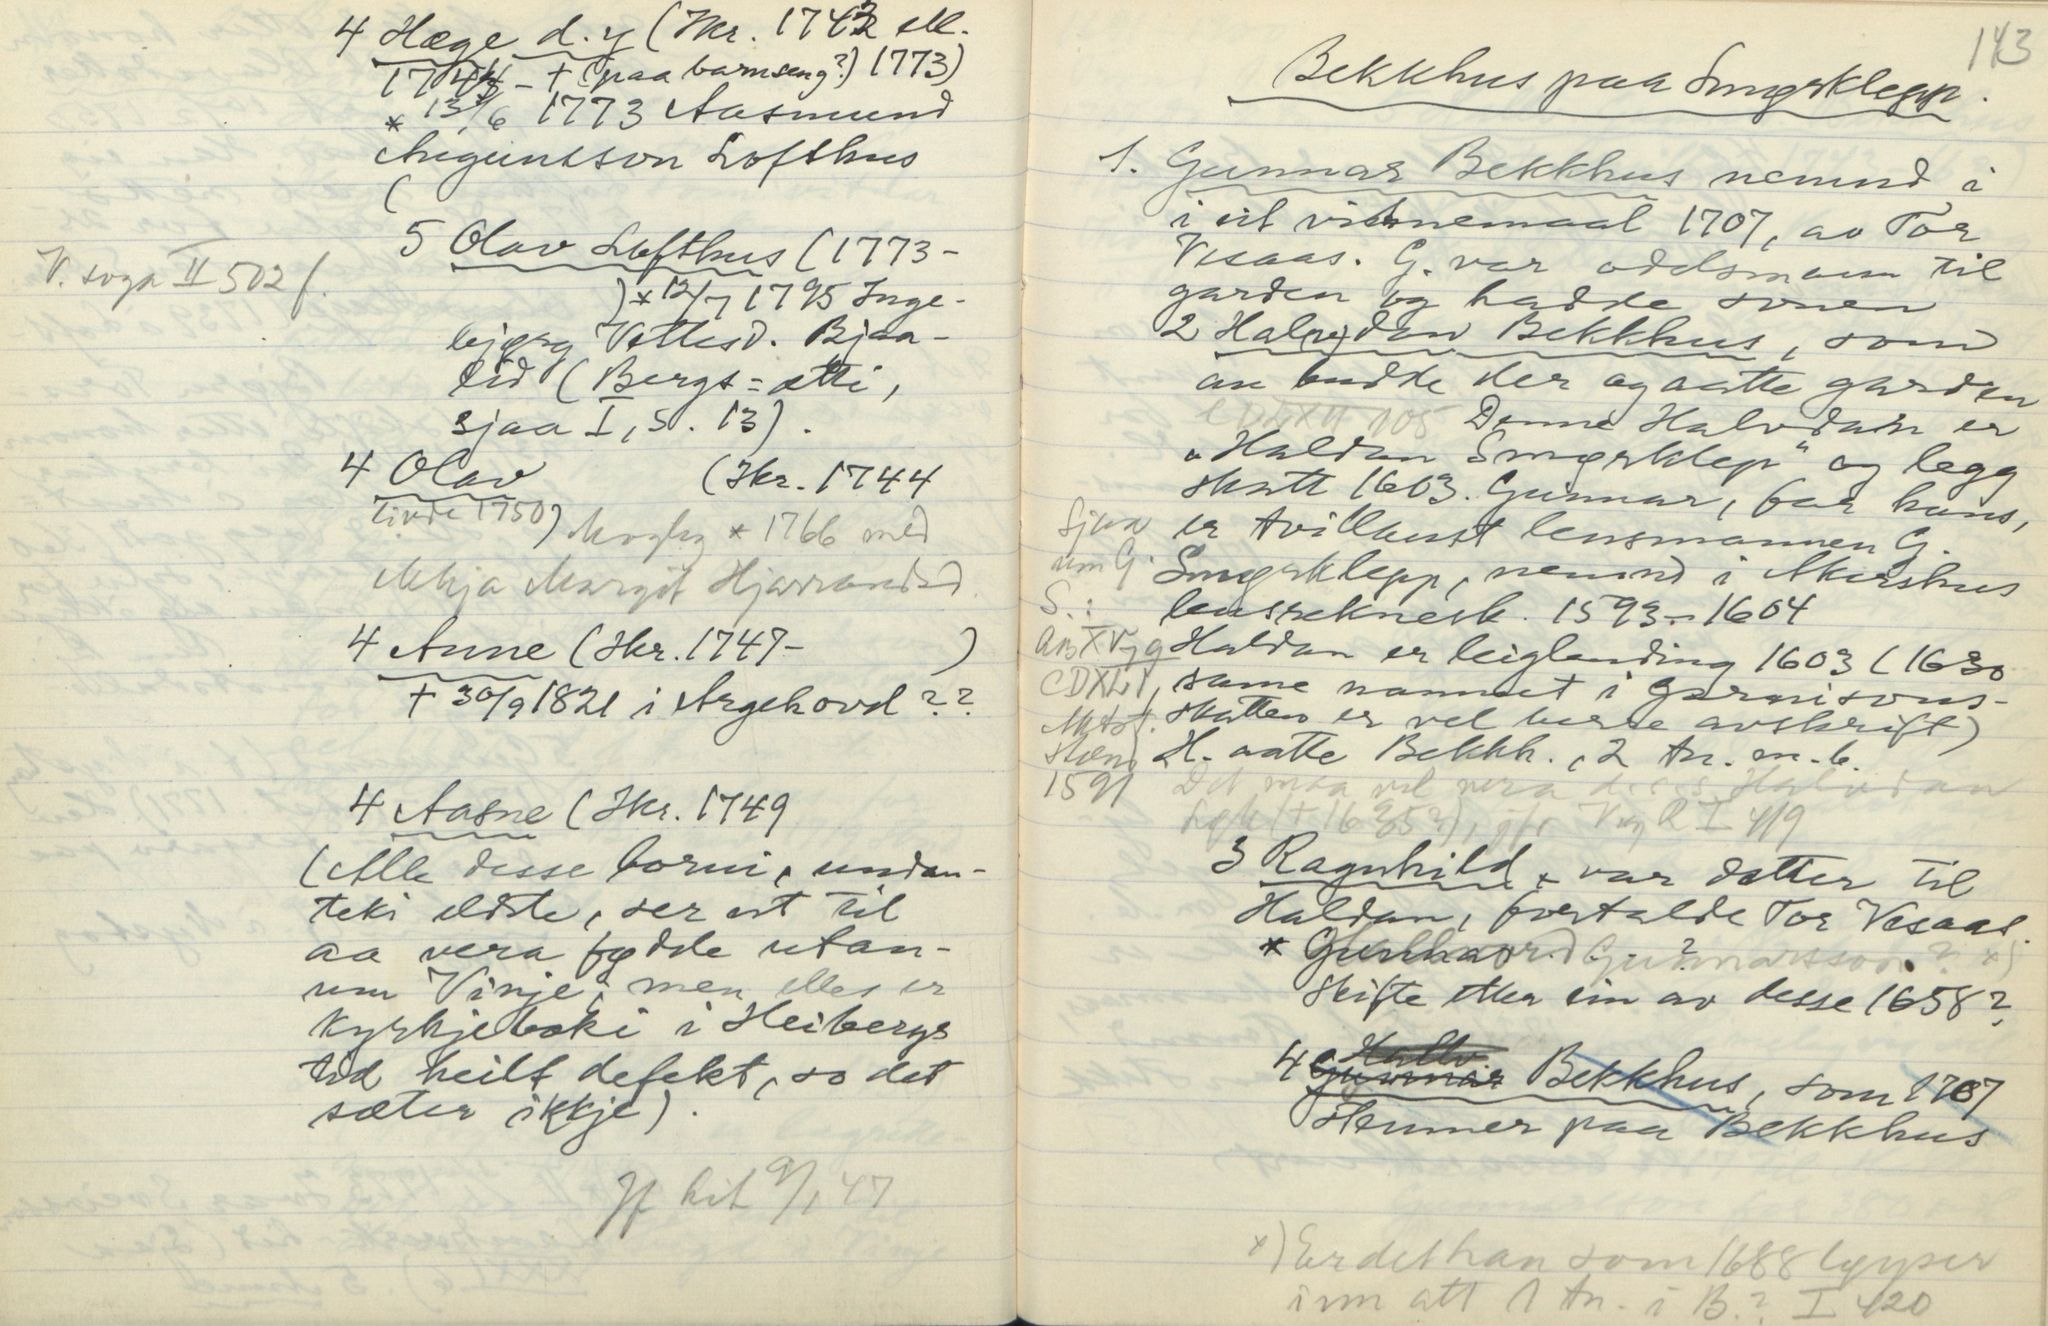 4 Hæge d. y (Ikr. 1743 ell.
1744 - + (paa barnseng?) 1773)
* 13/6 1773 Aasmund
Augunsson Lofthus
(
5 Olav Lofthus (1773-
V. soga II 502 f.
) * 12/7 1795 Inge-
bjørg Vetlesd. Bjaa-
lid (Bergs-ætti,
sjaa I, s. 13).
4 Olav (Ikr. 1744
livde 1750) * 1766 med
Margit Hjarrandsd.
4 Anne (Ikr. 1747- )
+ 30/9 1821 i Argehovd??
4 Aasne (Ikr. 1749
(Alle desse borni, undan-
teki eldste, ser ut til
aa vera fødde utan-
um Vinje; men elles er
kyrkjeboki i Heibergs
tid heilt defekt, so det
sæter ikkje).
Jf hit 9/1 47
143
Bekkhus paa Smørklepp.
1. Gunnar Bekkhus nemnd i
i eit vitnemaal 1707, av Tor
Vesaas. G. var odelsmann til
garden og hadde sonen
2 Hal(v)dan Bekkhus, som
budde der og aatte garden
Denne Halvdan er
"Haldan Smørklep" og legg
skatt 1603. Gunnar, far hans,
er tvillaust lensmannen G.
Smørklepp, nemnd i Akershus
lensreknesk. 1593-1604
Sjaa
um G.
S.:
XV, 9
CDXLI,
1591
Haldan er leiglending 1603 (1630
same namnet i Garnisons-
skatten er vel berre avskrift)
H. aatte Bekkh., 2 tn. m. b.
Det maa vel vera d. s. s. Halvdan
(+ 1635?), jfr V og R I 419
3 Ragnhild * var dotter til
Haldan, fortalde Tor Vesaas.
* Gunnarsson? x)
Skifte etter ein av desse 1658?
4 Gunnar Bekkhus, som 1707
stemner paa Bekkhus
x) Er det han som 1688 løyser
inn att 1 tn. i B.? I 420